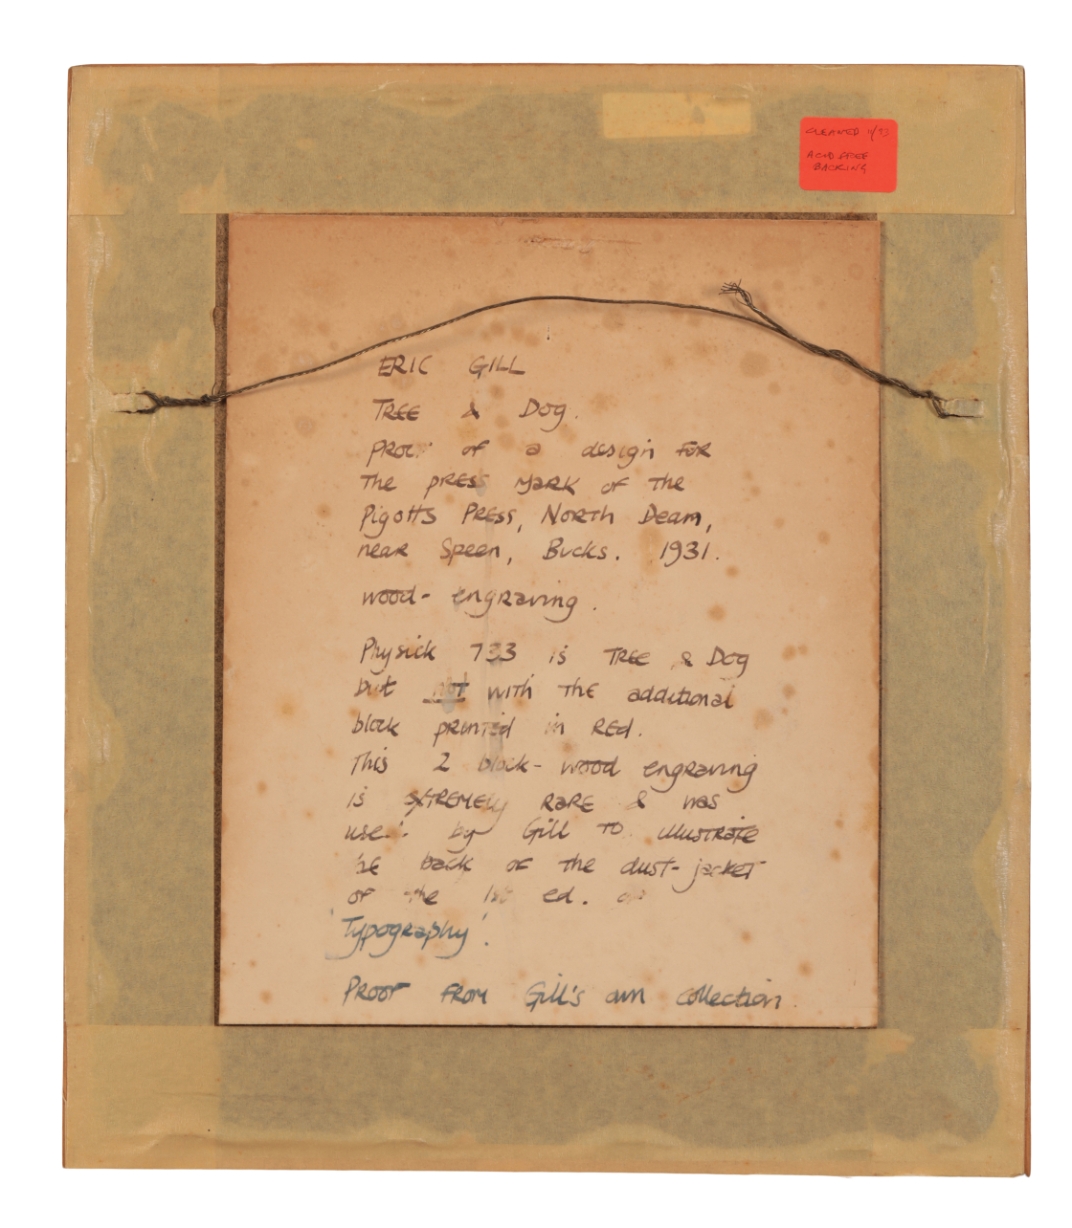 CLEANED 11/93
ACID FREE
BACKING
ERIC GILL
TREE & Dog.
of a design FOR
The PRESS MARK of The
Pigotts PRESS, NORTH Deam,
near Speen, Bucks. 1931.
wood-engraving.
Physick 733 is TREE & Dog
but not with THE additional
block printed in RED.
This 2 block-wood engraving
is EXTREMELY RARE & was
by Gill TO illustrate
back of the dust-jacket
of the 1st ed.
'Typography'.
PROOF FROM Gill's own collection.